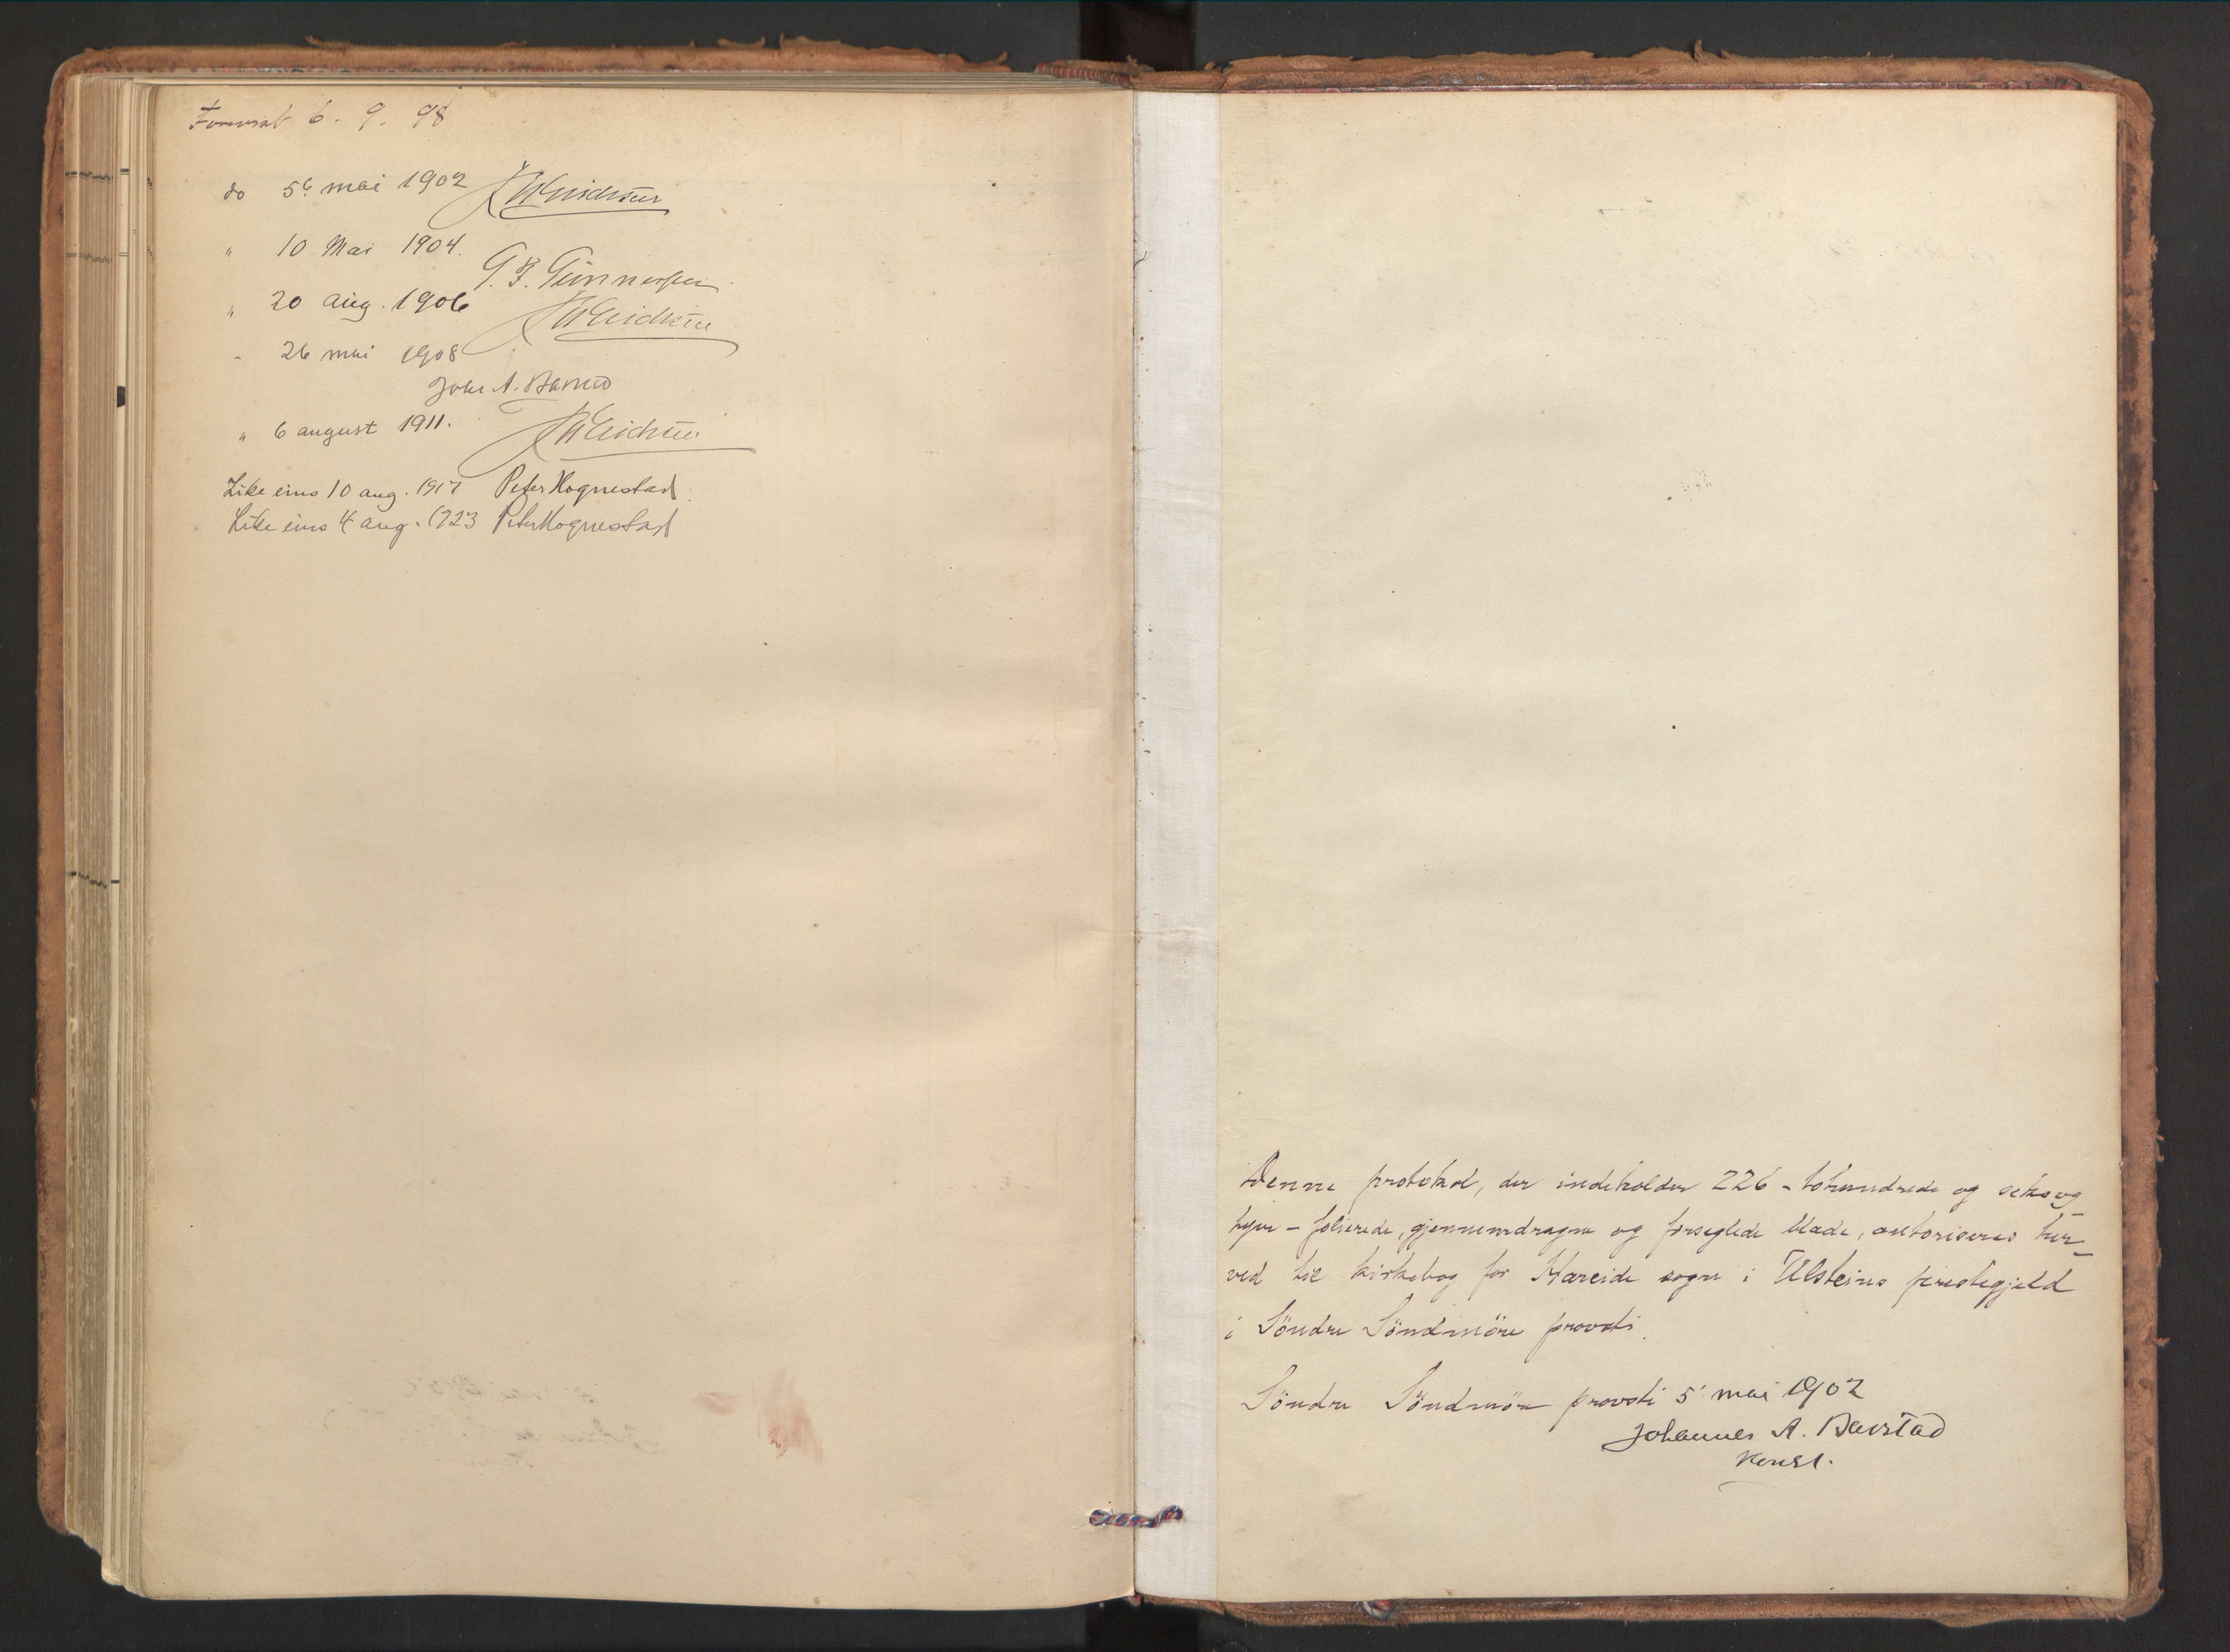 Foreviist 6. 9. 98
do 5te mai 1902
" 10 Mai 1904.
G. F. Gunnersen
" 20 aug. 1906
" 26 mai 1908
Johs A. Barstad
" 6 august 1911.
Like eins 10 aug. 1917 Peter Hognestad.
Like eins 4 aug. 1923 Peter Hognestad
Denne protokol, der indeholder 226 - tohundrede og seks og
tyve - folierede, gjennemdragne og forseglede blade, autoriseres her-
ved til kirkebog for Hareide sogn i Ulsteins prestegjeld
i Söndre Söndmöre provsti.
Söndre Söndmöre provsti 5' mai 1902
Johannes A. Barstad
konst.